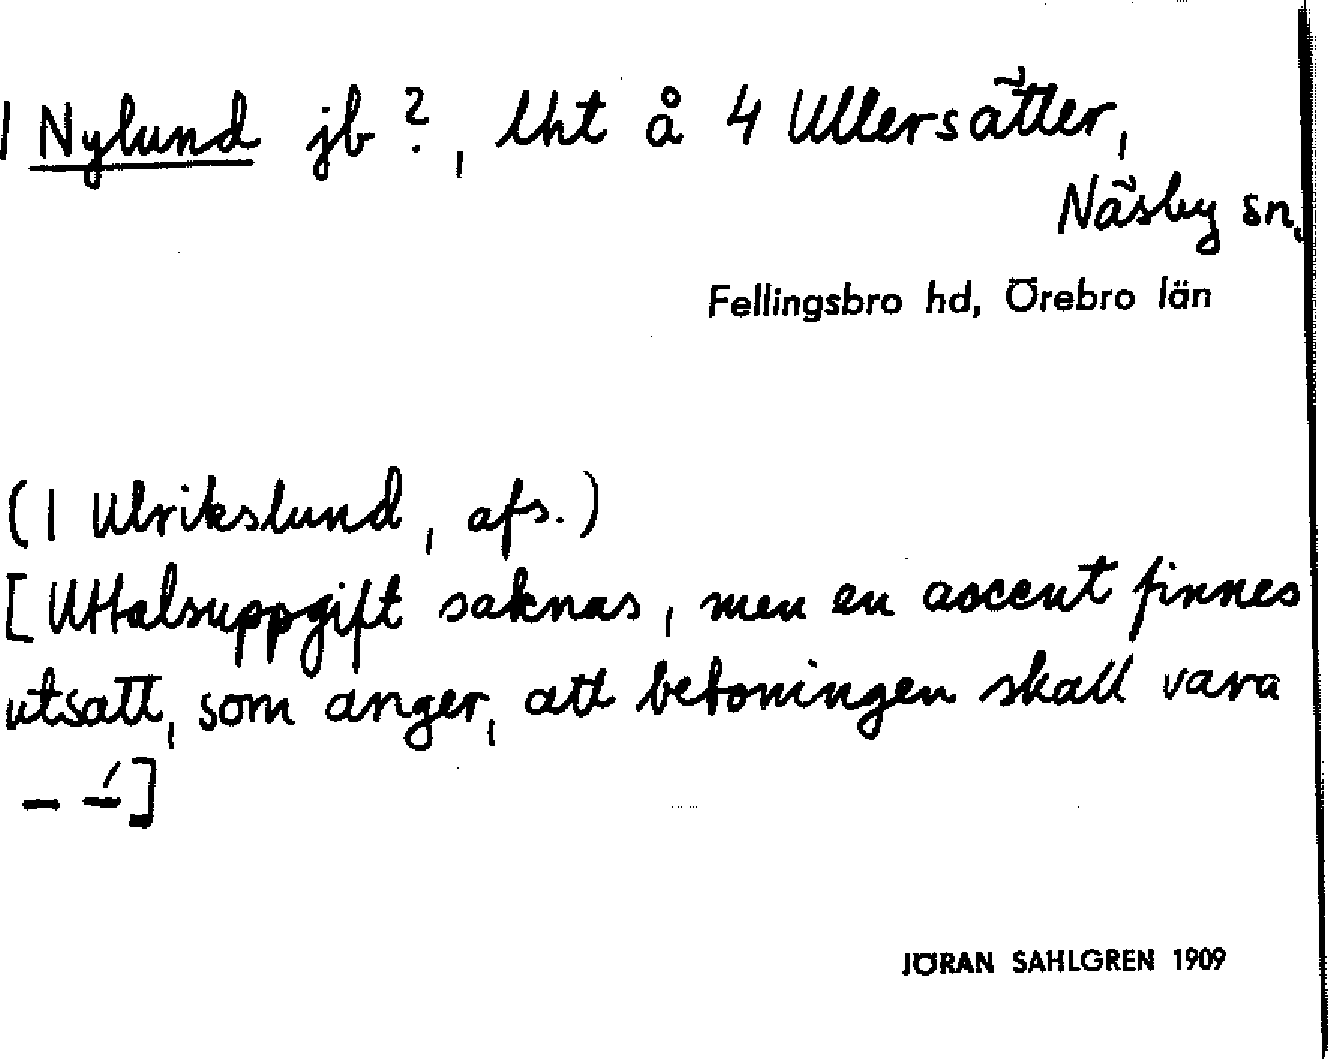 1 Nylund jb ?, lht å 4 Ullersätter,
Näsby sn,
Fellingsbro hd, Örebro län
(1 Ulrikslund, afs.)
[Uttalsuppgift saknas, men en accent finnes
utsatt, som anger, att betoningen skall vara
– –́]
JÖRAN SAHLGREN 1909